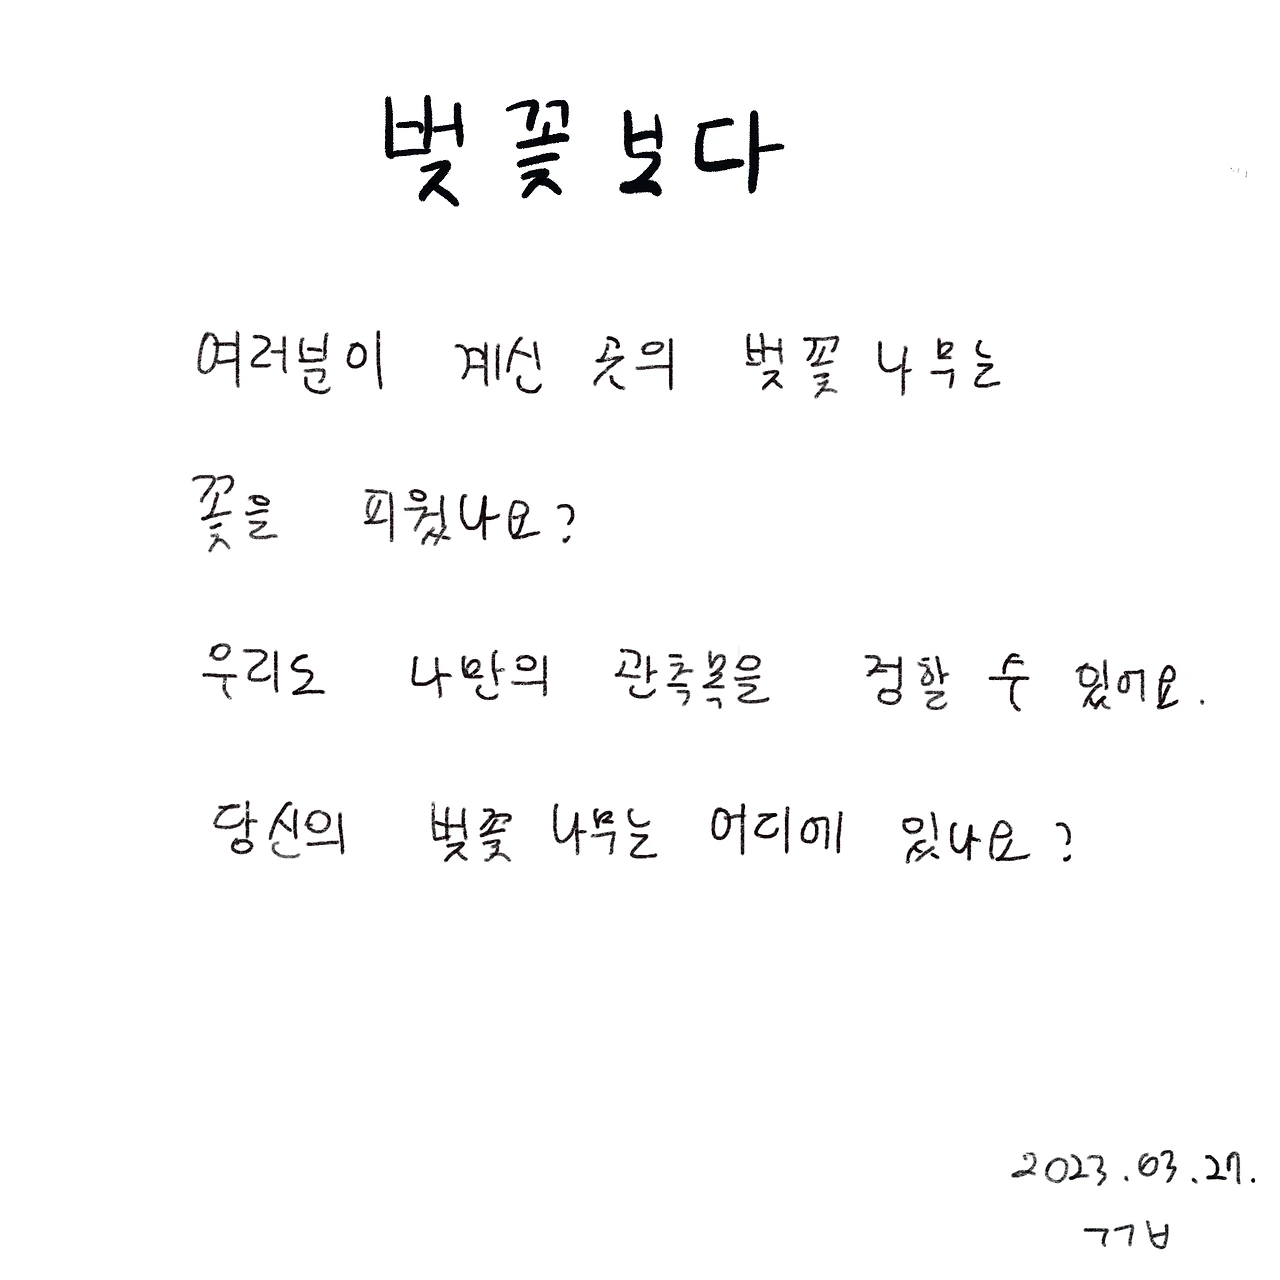 벚꽃보다
여러분이 계신 곳의 벚꽃나무는
꽃을 피웠나요?
우리도 나만의 관측목을 정할 수 있어요.
당신의 벚꽃나무는 어디에 있나요?
2023.03.27.
ㄱㄱㅂ